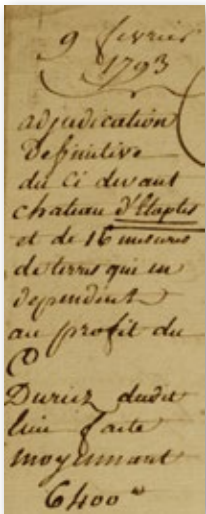 9 fevrier
1793
adjudication
Definitive
du Ci devant
chateau d'Etaples
et de 16 mesures
de terres qui en
dependent
au profit du
C
Duriez dudit
lieu faite
moyennant
6400ᵗᵗ